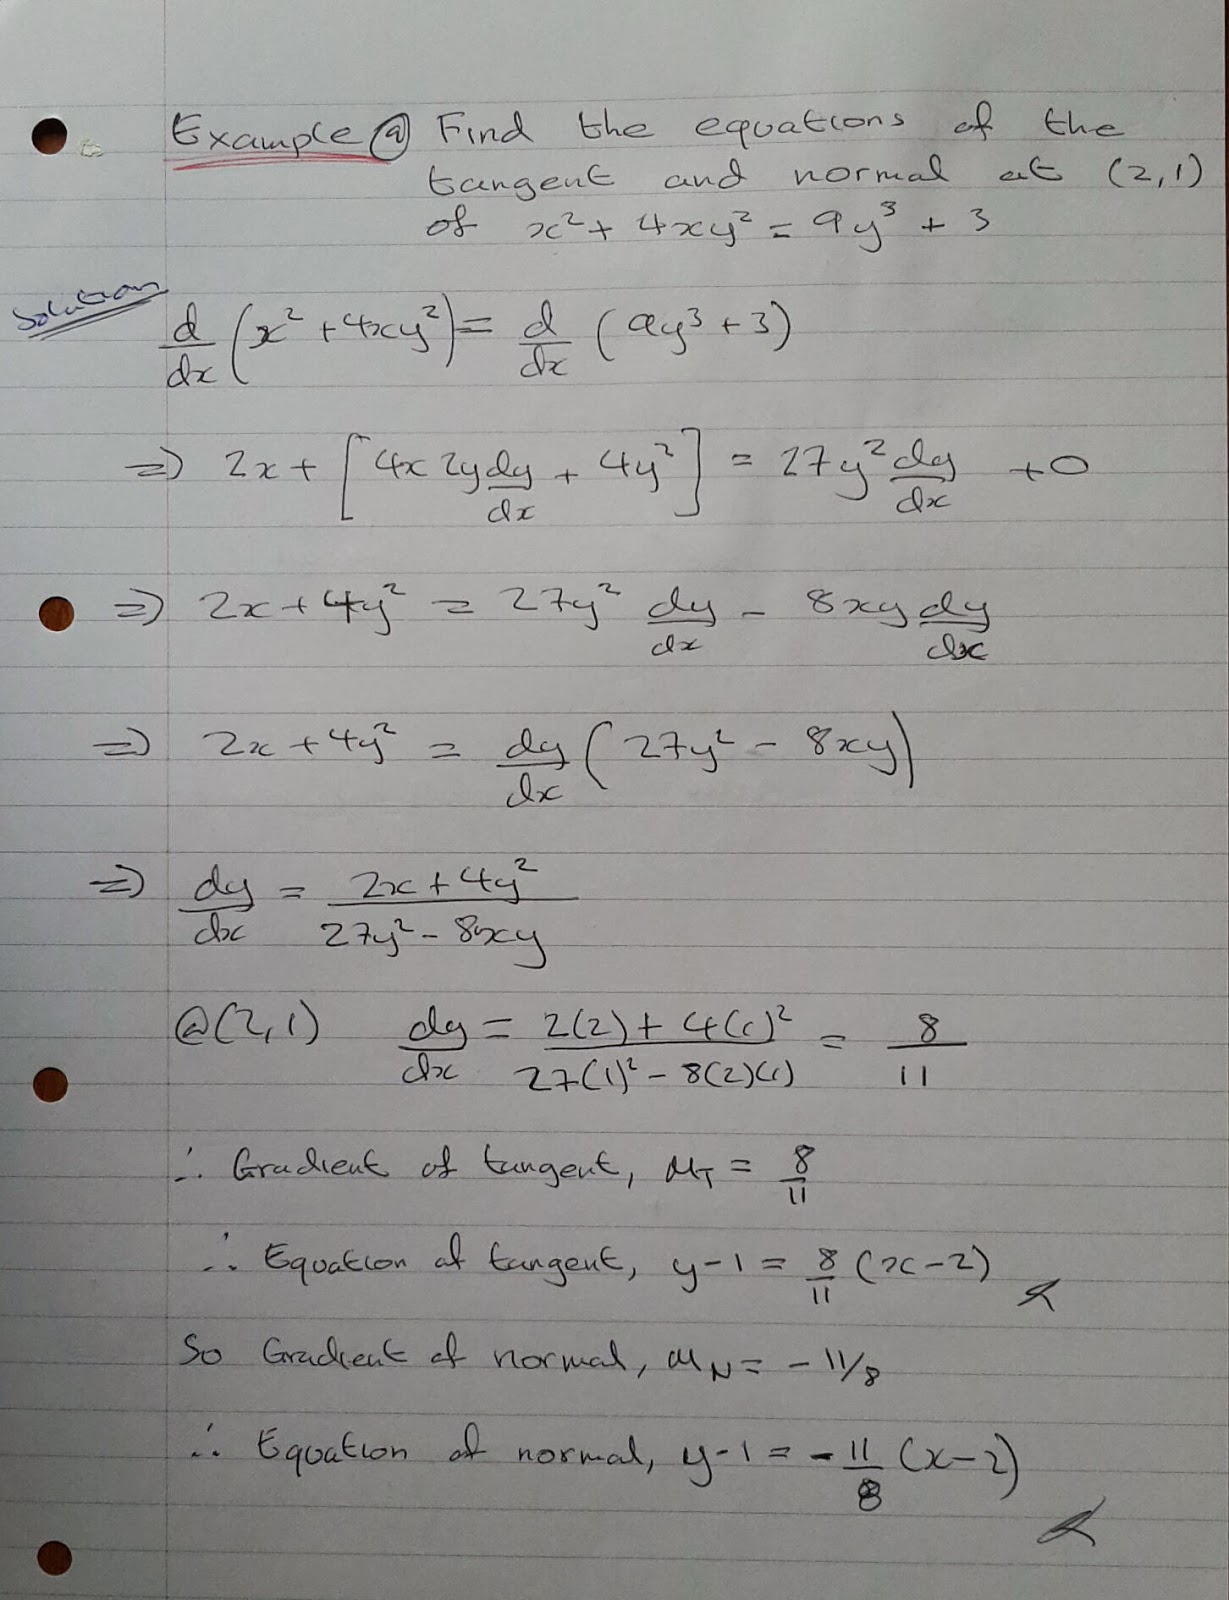 Example @ Find the equations of the
tangent and normal at (2,1)
of x² + 4xy² = 9y³ + 3
Solution
d/dx (x² + 4xy²) = d/dx (9y³ + 3)
⇒ 2x + [4x 2y dy/dx + 4y²] = 27y² dy/dx + 0
⇒ 2x + 4y² = 27y² dy/dx - 8xy dy/dx
⇒ 2x + 4y² = dy/dx (27y² - 8xy)
⇒ dy/dx = (2x + 4y²)/(27y² - 8xy)
@(2,1) dy/dx = (2(2) + 4(1)²)/(27(1)² - 8(2)(1)) = 8/11
∴ Gradient of tangent, M_T = 8/11
∴ Equation of tangent, y-1 = 8/11 (x-2)
So Gradient of normal, M_N = -11/8
∴ Equation of normal, y-1 = -11/8 (x-2)